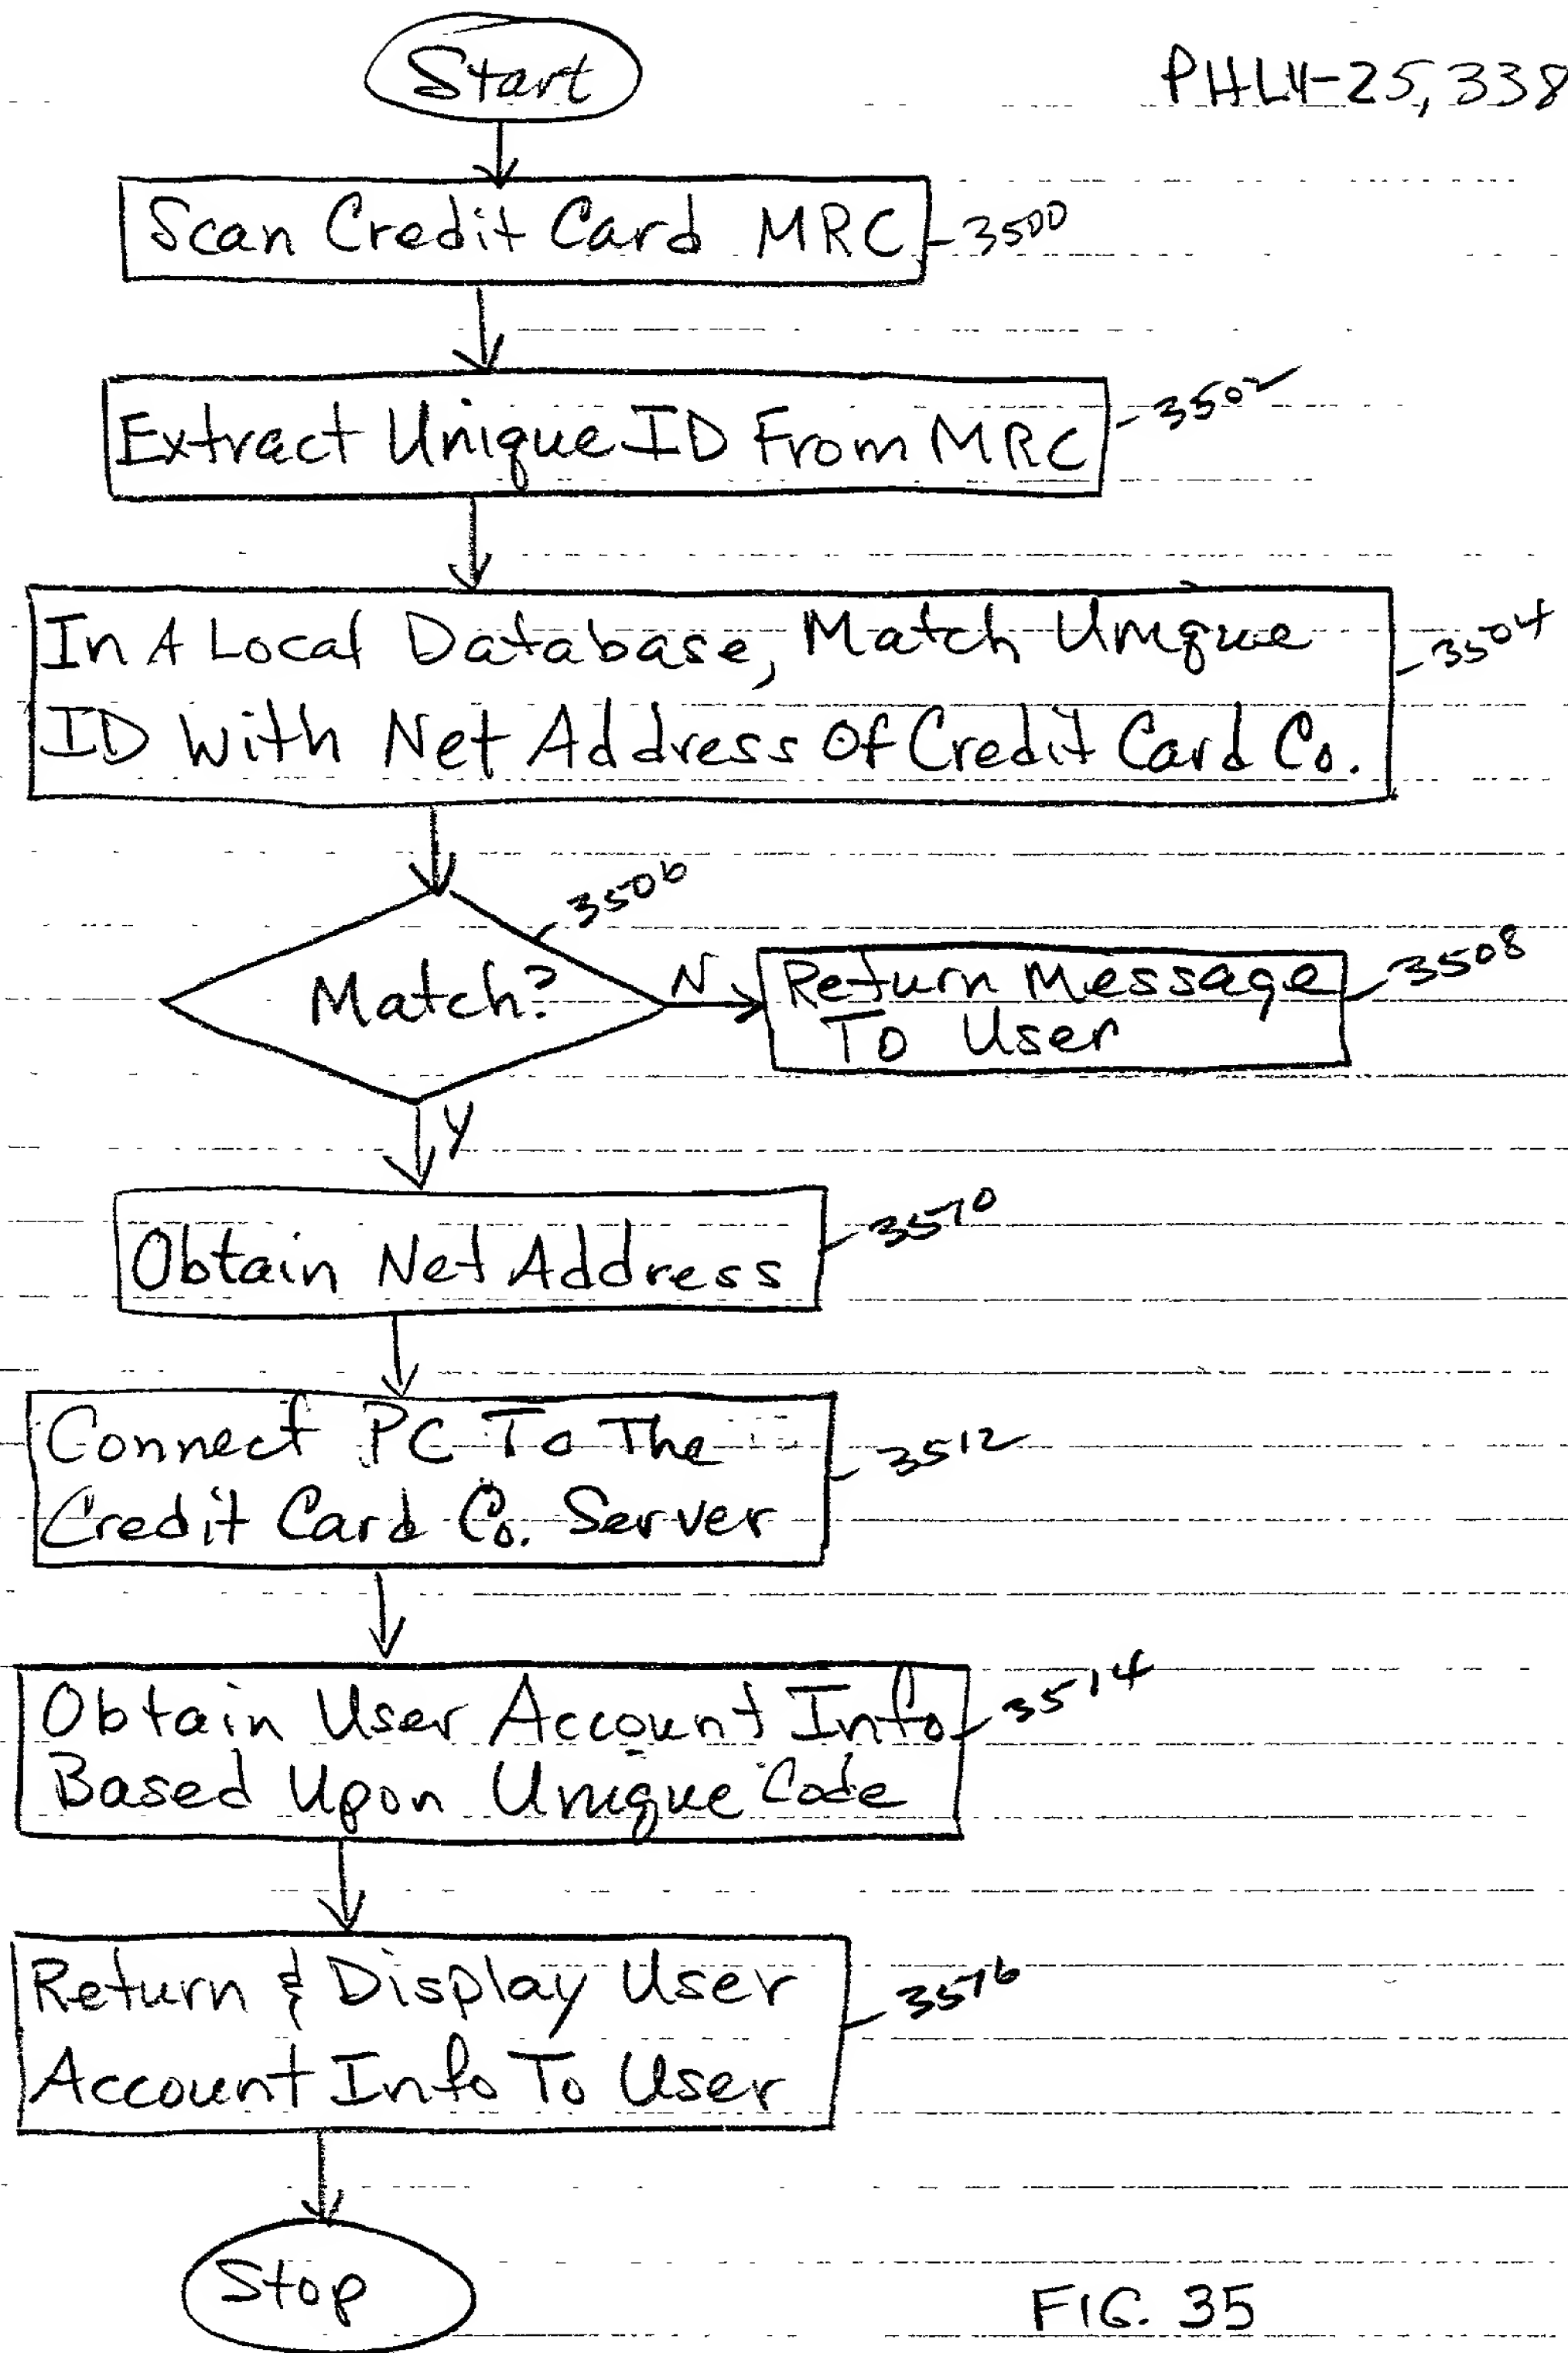 Start
PHLY-25,338
Scan Credit Card MRC
3500
Extract Unique ID From MRC
3502
In A Local Database, Match Unique
ID With Net Address Of Credit Card Co.
3504
3506
Match?
N
Return Message
To User
3508
Y
Obtain Net Address
3510
Connect PC To The
Credit Card Co. Server
3512
Obtain User Account Info
Based Upon Unique Code
3514
Return & Display User
Account Info To User
3516
Stop
FIG. 35